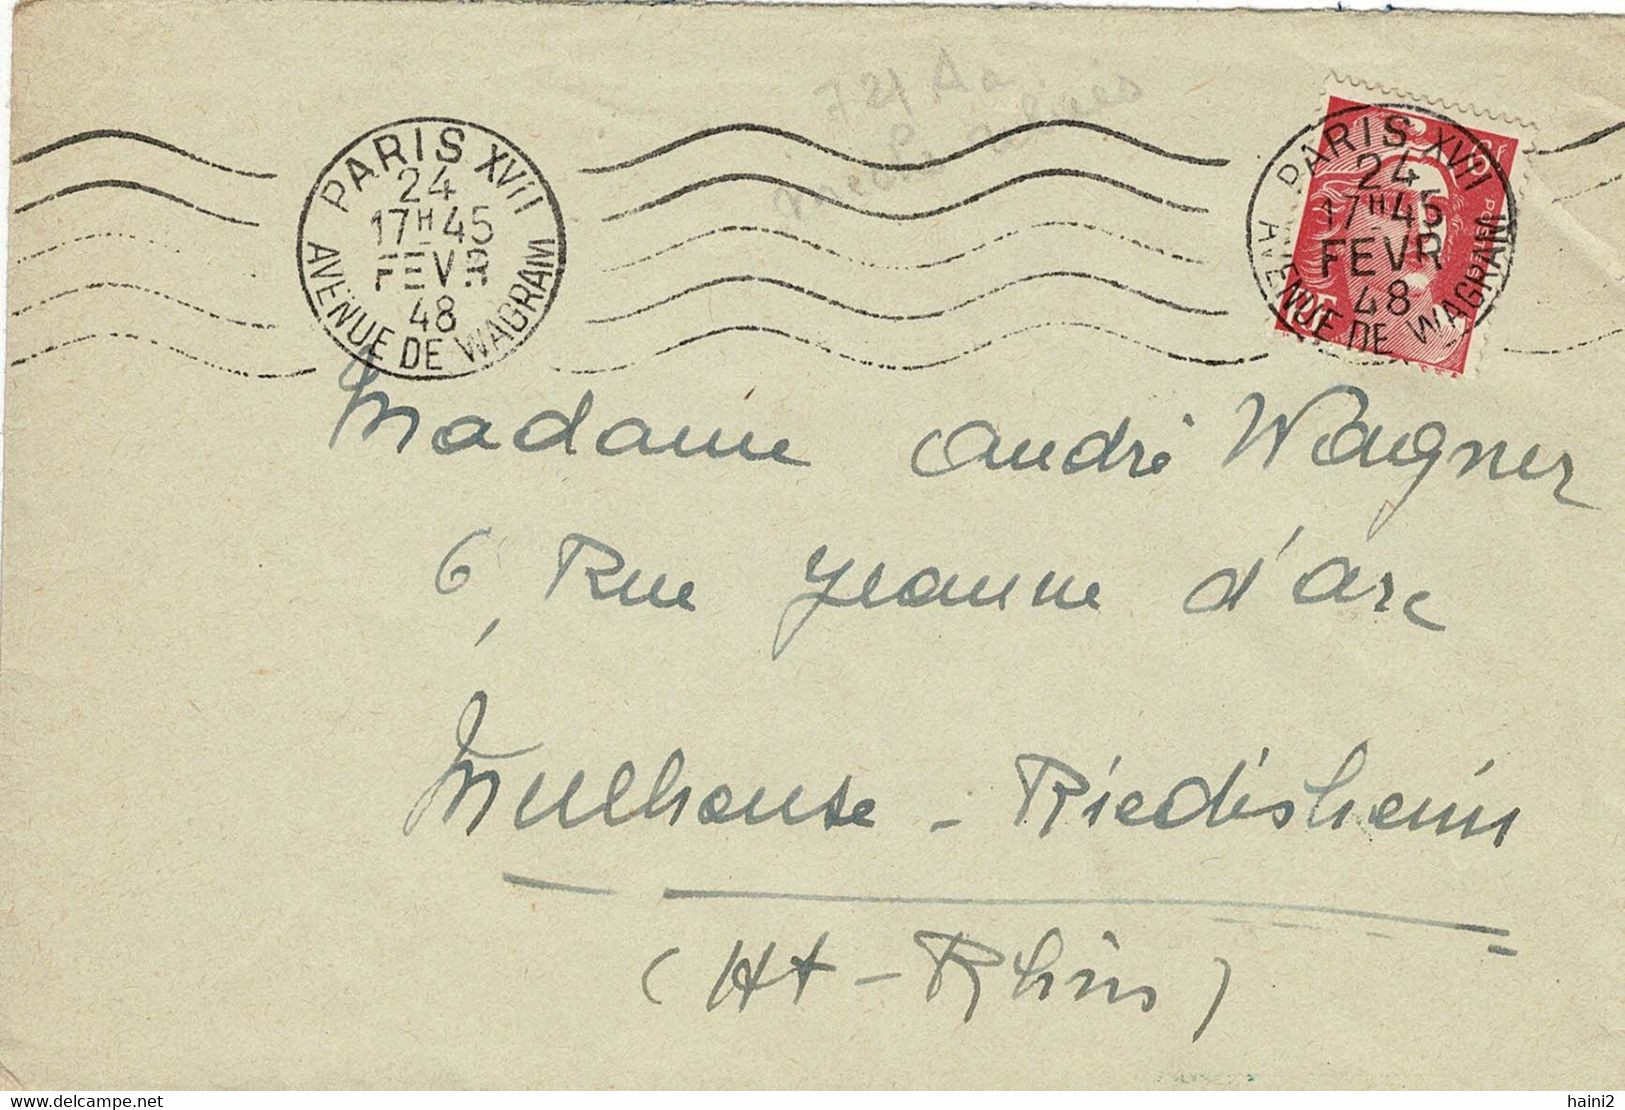 721 Aa
PARIS XVII
24
17H45
FEVR
48
AVENUE DE WAGRAM
PARIS XVII
24
17H45
FEVR
48
AVENUE DE WAGRAM
Madame André Wagner
6, Rue Jeanne d'Arc
Mulhouse - Riedisheim
(Ht - Rhin)
www.delcampe.net
haini2